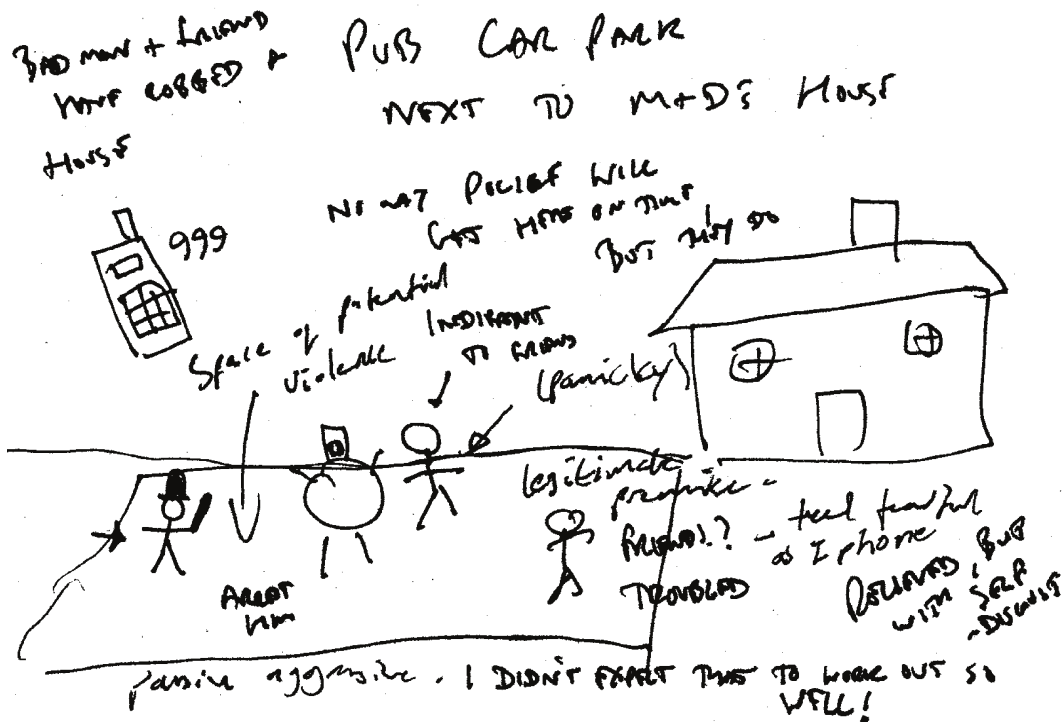 BAD MAN + FRIEND
HAVE ROBBED A
HOUSE
PUB CAR PARK
NEXT TO M+D'S HOUSE
NO WAY POLICE WILL
GET HERE ON TIME!
BUT THEY DO
999
Space of potential
violence
INDIFFERENT
TO FRIEND
(panicky)
legitimate
promise -
FRIENDS.?
TROUBLED
- feel fearful
as I phone
RELIEVED, BUT
WITH SELF
-DISGUST
ARREST
HIM
passive aggressive. I DIDN'T EXPECT THAT TO WORK OUT SO
WELL!